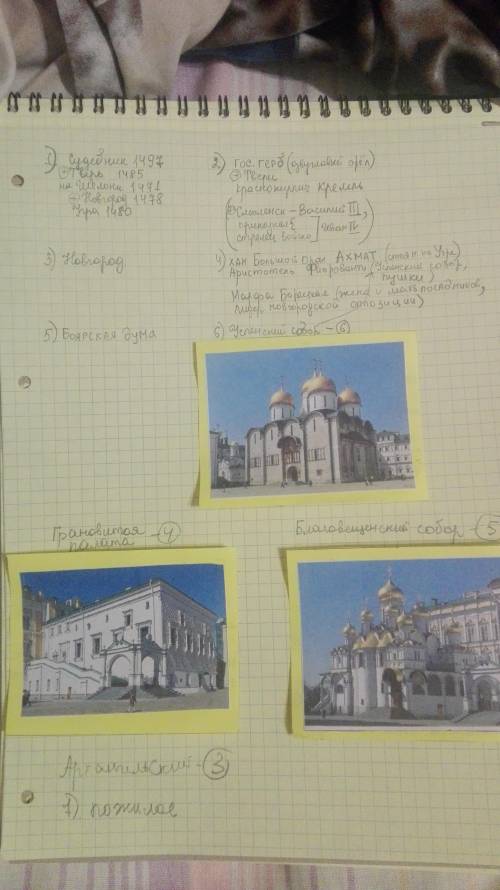 1) Судебник 1497
⊕ Тверь 1485
на Шелони 1471
⊕ Новгород 1478
Угра 1480
2) гос. герб (двуглавый орёл)
⊕ Твери
краснокирпич Кремль
Смоленск - Василий III,
приказы
стрелец. войско ] Иван IV
3) Новгород
4) хан Большой Орды Ахмат (стоян. на Угре)
Аристотель Фиорованти (Успенский собор,
пушки)
Марфа Борецкая (жена и мать посадников,
лидер новгородской оппозиции)
5) Боярская дума
6) Успенский собор - 6
Грановитая
палата - 4
Благовещенский собор - 5
Архангельский - 3
7) пожилое